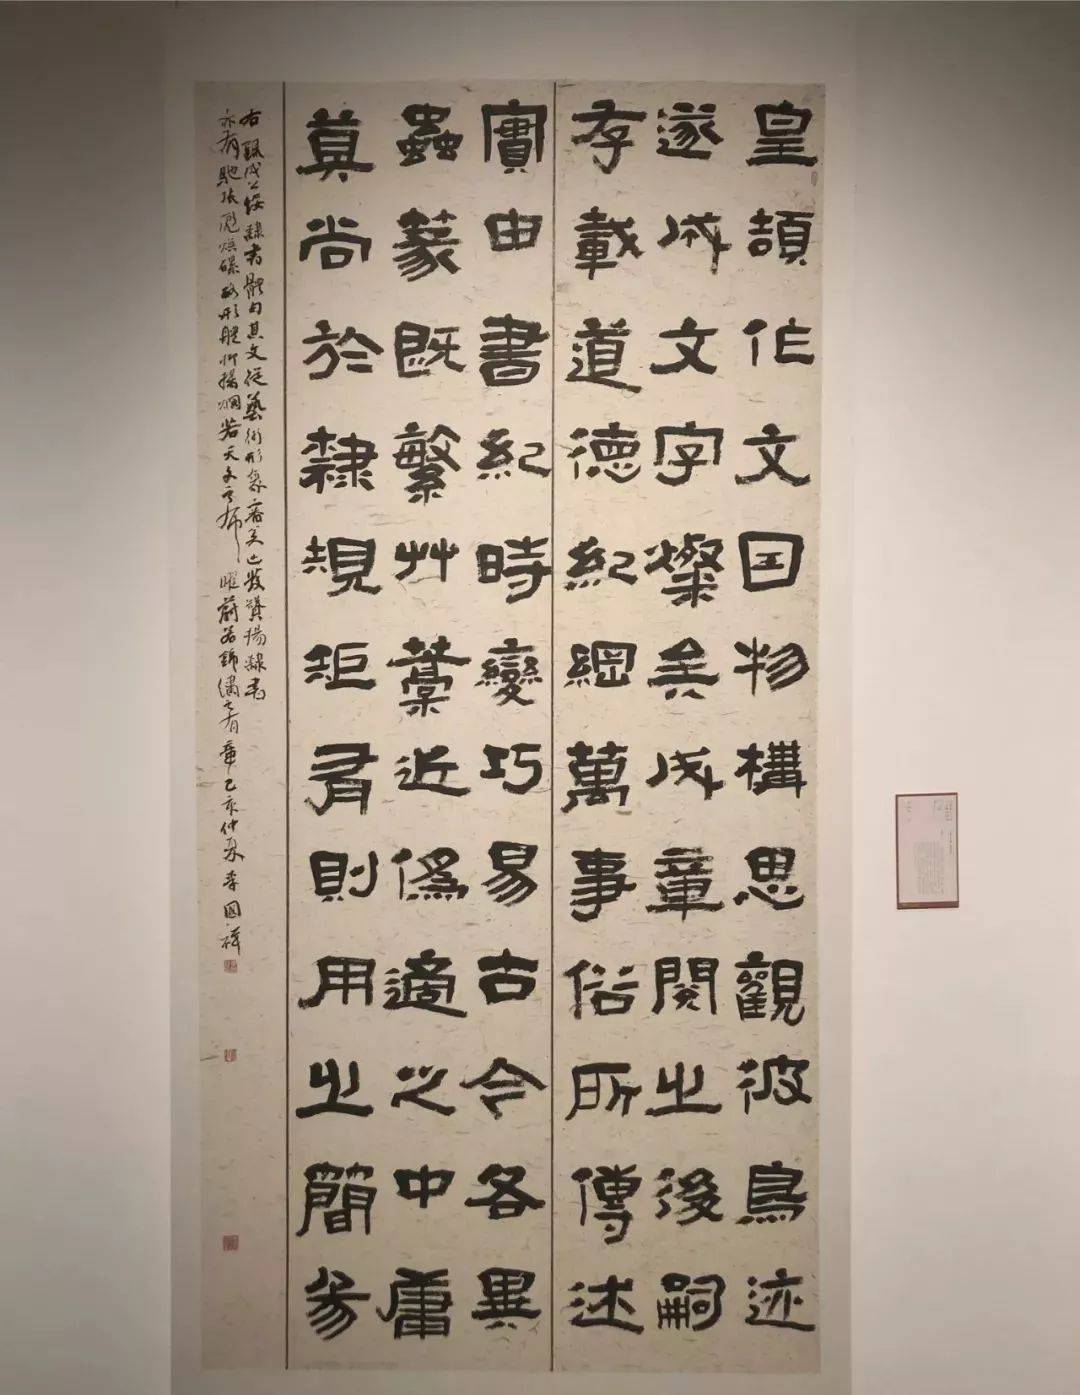 皇頡作文囙物構思觀彼鳥迹
遂成文字燦矣成章閱之後嗣
存載道德紀綱萬事俗所傳述
實由書紀時變巧易古今各異
蟲篆既繁艸藁近偽適之中庸
莫尚於隸規矩有則用之簡易
右錄成公綏隸書體句其文從藝術形象審美已發贊揚隸書
亦有馳張彪煥磥硌形體抑揚爛若天文之布曜蔚若錦繡之有章己亥仲李國祥